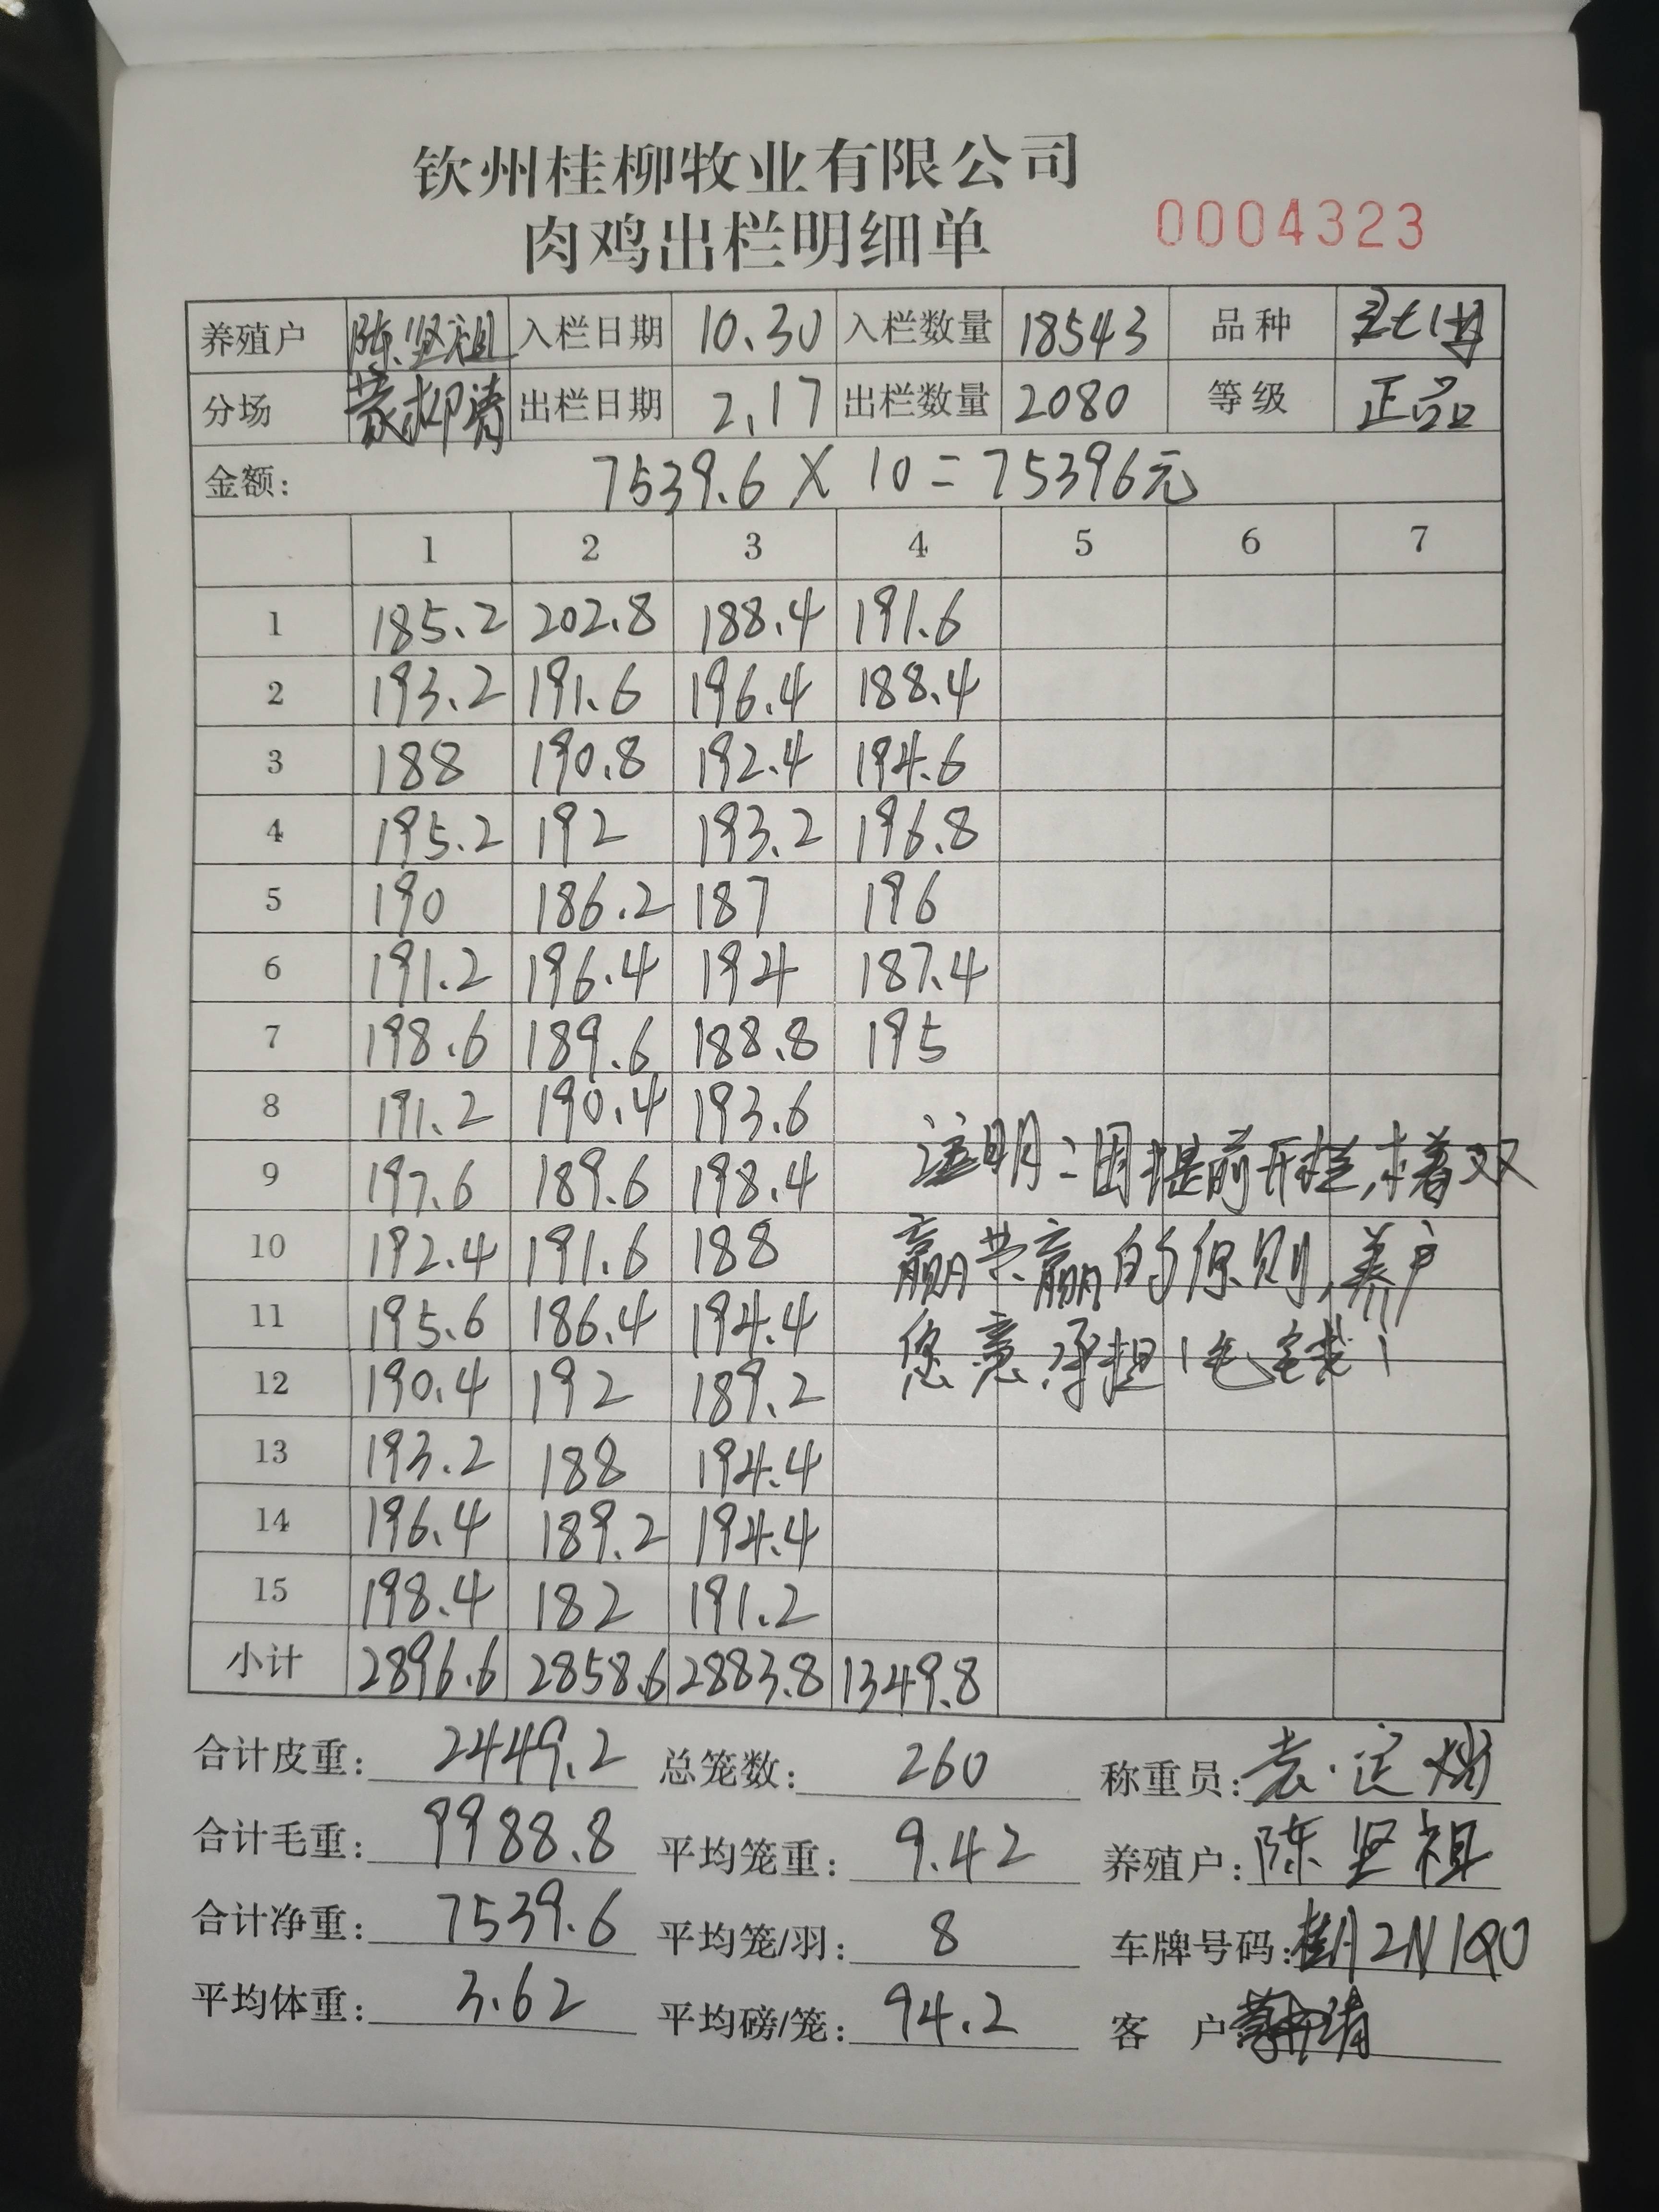 钦州桂柳牧业有限公司
肉鸡出栏明细单
0004323
养殖户 陈坚祖 入栏日期 10.30 入栏数量 18543 品种
分场 蒙柳清 出栏日期 2.17 出栏数量 2080 等级 正品
金额: 7539.6 X 10 = 75396元
1 2 3 4 5 6 7
1 185.2 202.8 188.4 191.6
2 193.2 191.6 196.4 188.4
3 188 190.8 192.4 194.6
4 195.2 192 193.2 196.8
5 190 186.2 187 196
6 191.2 196.4 194 187.4
7 198.6 189.6 188.8 195
8 191.2 190.4 193.6
9 197.6 189.6 198.4 注明:因提前开栏,本着双
10 192.4 191.6 188 赢共赢的原则,养户
11 195.6 186.4 194.4 您意承担1毛钱!
12 190.4 192 189.2
13 193.2 188 194.4
14 196.4 189.2 194.4
15 198.4 182 191.2
小计 2896.6 2858.6 2883.8 1349.8
合计皮重: 2449.2 总笼数: 260 称重员:
合计毛重: 9988.8 平均笼重: 9.42 养殖户: 陈坚祖
合计净重: 7539.6 平均笼/羽: 8 车牌号码: 2N1Q0
平均体重: 3.62 平均磅/笼: 94.2 客 户